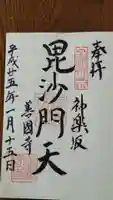 奉拝
神楽坂
毘沙門天
善國寺
平成廿五年一月十五日